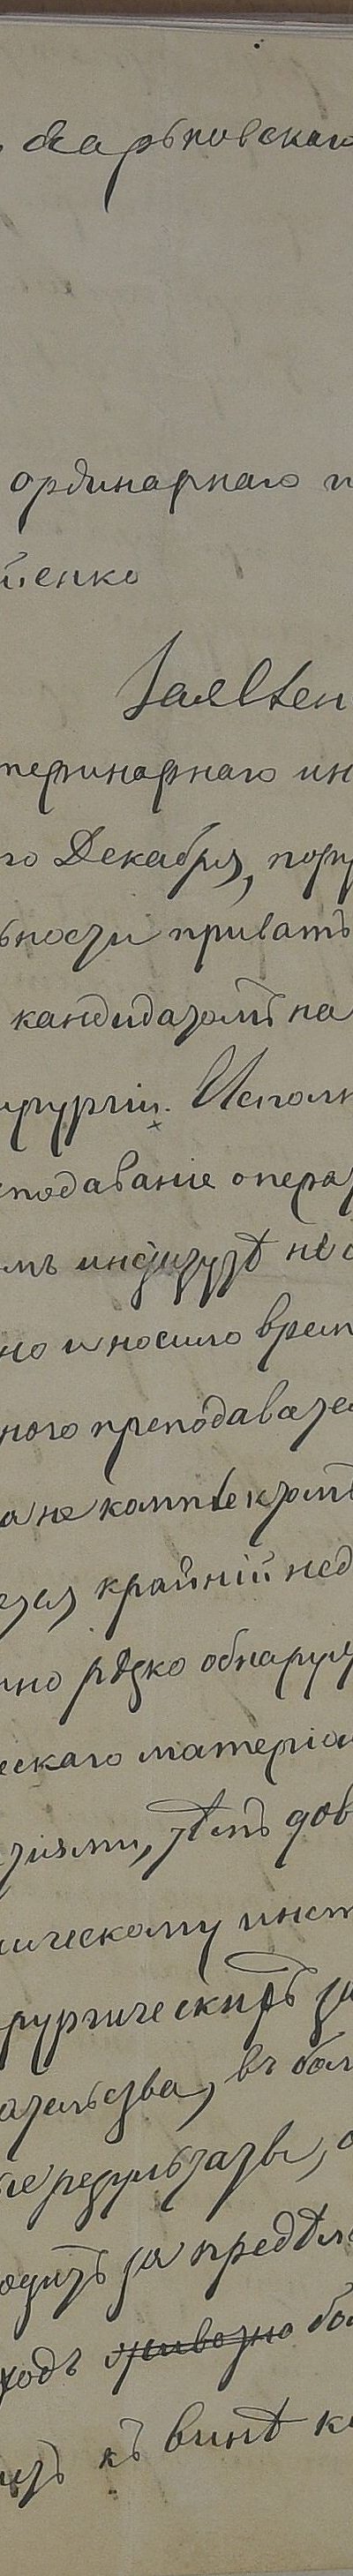 Харьковскаго
ординарнаго п
йенко
Заявлен
теринарнаго ин
го Декабря, пору
ности приватъ
кандидатомъ на
ирургіи. Исполн
еподаваніе операт
мъ институтѣ не о
но и носило врем
ного преподавател
а не комплектомъ
крайній нед
но рѣдко обнаруж
ескаго матеріа
тіями, тѣмъ дов
ическому инст
рургическихъ за
ательства, въ бол
ые результаты, о
одитъ за предѣл
ходъ животно бол
къ винѣ кл